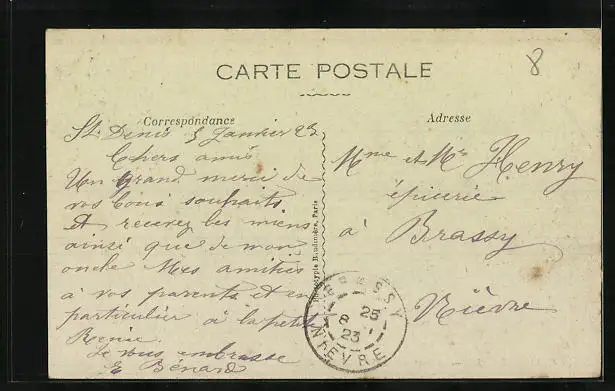 8
CARTE POSTALE
Correspondance
Adresse
St Denis 5 Janvier 23
Chers amis
Un grand merci de
vos bons souhaits
Et recevez les miens
ainsi que de mon
oncle Mes amitiés
à vos parents et en
particulier à la petite
Renée
Je vous embrasse
E Bénard
Phototypie Baudinière, Paris
Mme et Mr Henry
épicerie
à Brassy
Nièvre
BRASSY
25
8 1
23
NIEVRE